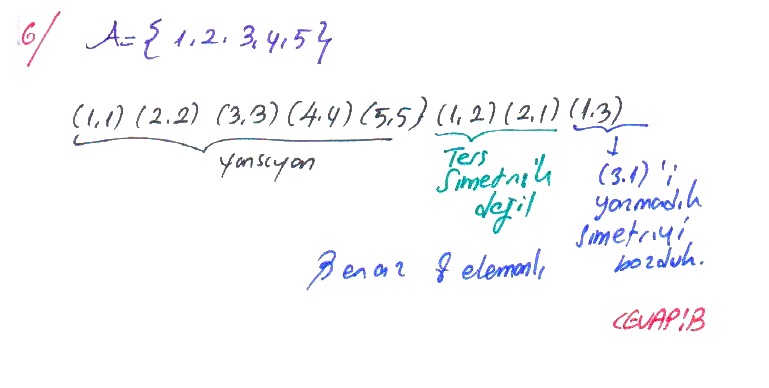 6/ A={1,2,3,4,5}
(1,1) (2,2) (3,3) (4,4) (5,5) (1,2) (2,1) (1,3)
yansıyan
Ters
simetrik
değil
(3,1)'i
yazmadık
simetriyi
bozduk.
En az 8 elemanlı
CEVAP:B